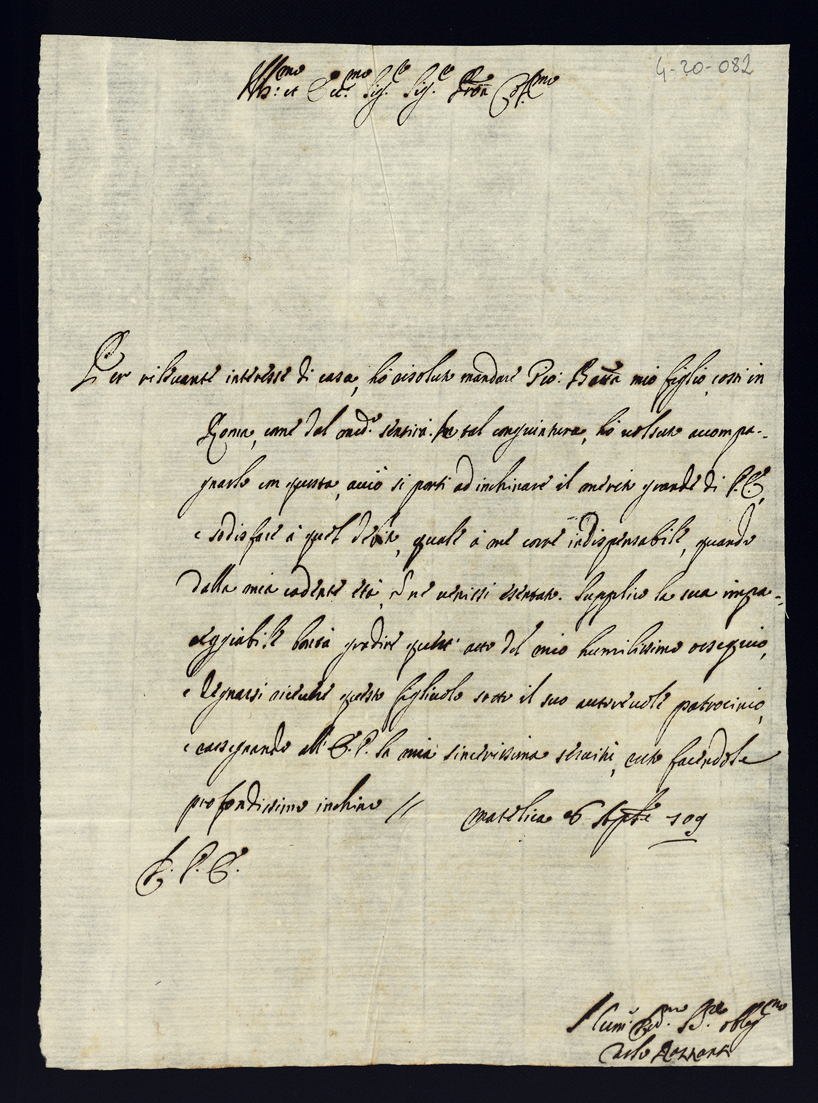 4-20-082
Ill.mo et Ecc.mo Sig.re Sig.re Pron Col.mo
Per rilevante interesse di casa, hò risoluto mandare Gio: Batta mio figlio costì in
Roma, come dal med.o sentirà. In tal congiuntura, hò voluto accompa-
gnarlo con questa, acciò si porti ad inchinare il merito grande di V.E,
e sodisfare à quel debito, quale à me corre indispensabile, quando
dalla mia cadente età, non ne venissi esentato. Supplico la sua impa-
reggiabile bontà gradire quest' atto del mio humilissimo ossequio,
e degnarsi ricevere questo figliuolo sotto il suo autorevole patrocinio,
e rassegnando all' E.V. la mia sincerissima servitù, resto facendole
profondissimo inchino // Matelica 26 Sett.bre 709
D. V. E.
Hum.mo Dev.mo Ser.re oblig.mo